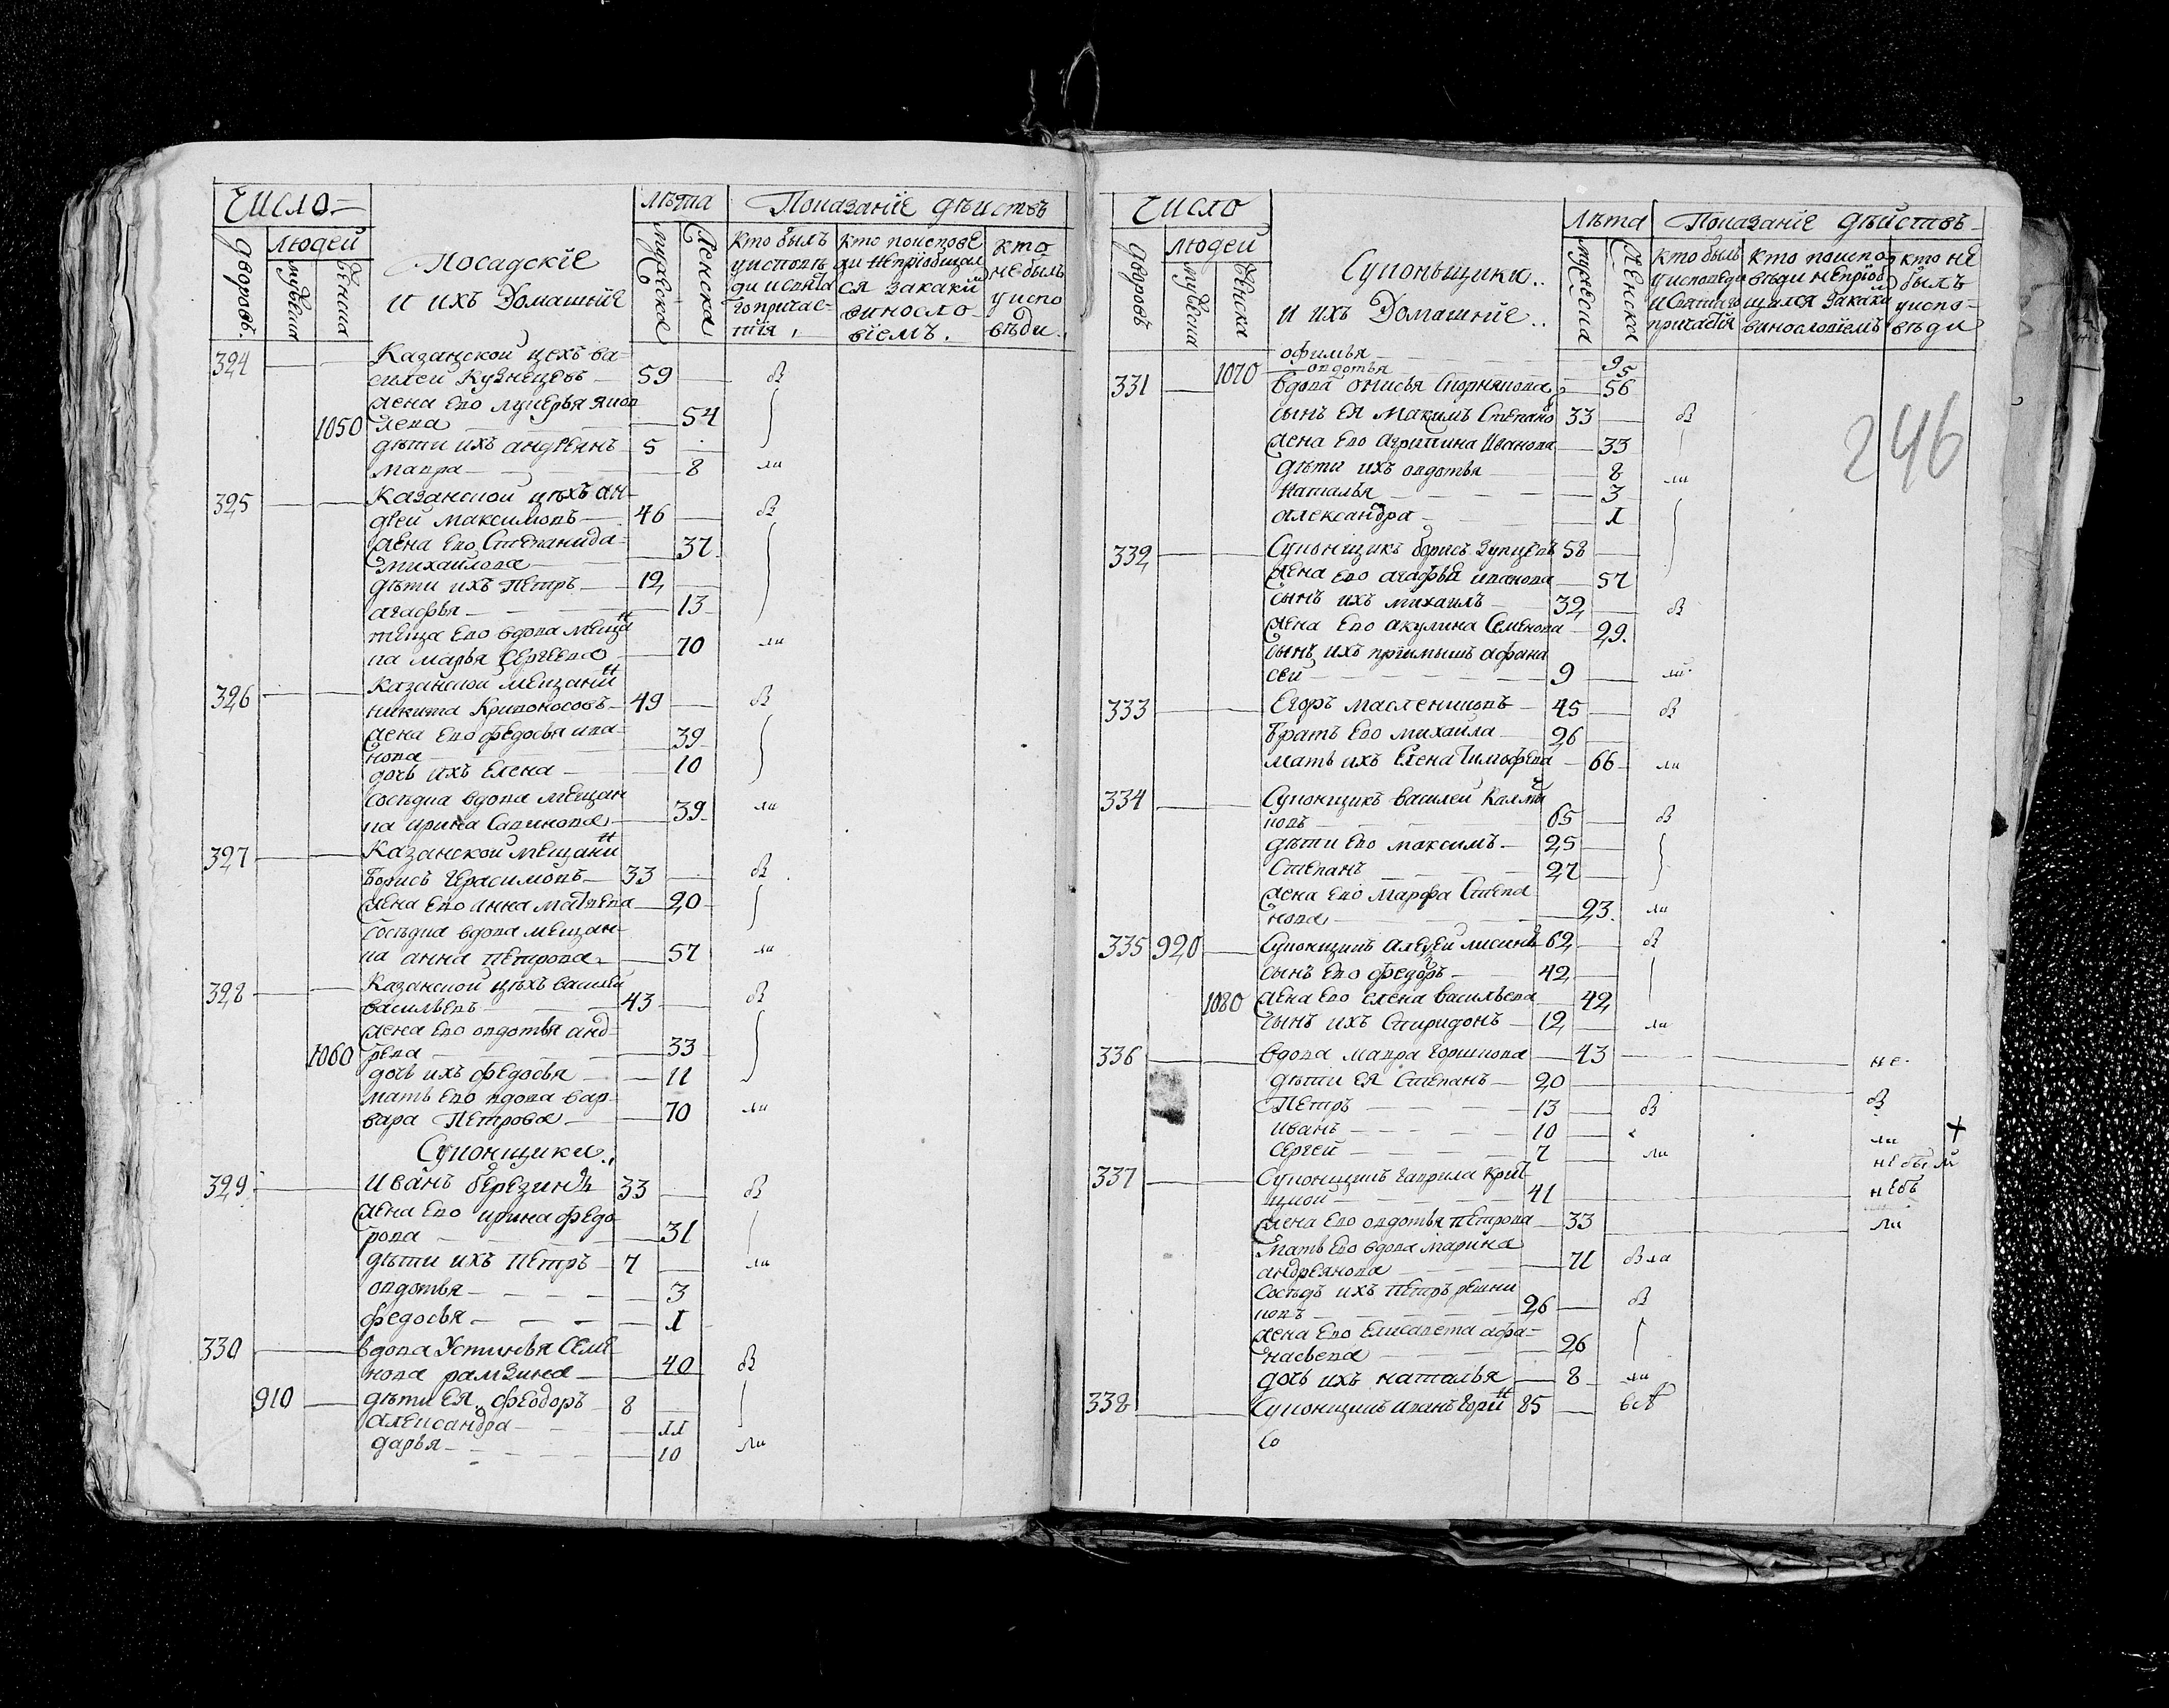 Число
лѣта Показанїе дѣиствъ
дворовъ людей
мужеска женска
Посадскїе
и ихъ Домашнїе
мужеска женска
кто былъ
у исповѣ
ди и свята
го причас-
тїя,
кто поисповѣ
ди непрїобщал
ся закакй
виносло-
вїемъ.
кто
не былъ
у испо
вѣди.
324 Казанской цехъ ва-
силеи Кузнецовъ 59 в
жена ево лукерья яков
1050 лева 54
дѣти ихъ андреянъ 5
мавра 8 ли
325 Казанской цехъ ан-
дрей максимовъ 46 в
жена ево степанида
михаилова 37
дѣти ихъ петръ 12
агафья 13
теща ево вдова мещан
ка марья сергеева 70 ли
326 Казанской мещанин
никита Кривоносовъ 49 в
жена ево федосья ива-
нова 39
дочь ихъ елена 10
сосѣдка вдова мещан
ка ирина савинова 39 ли
327 Казанской мещанин
борисъ герасимовъ 33 в
жена ево анна матвева 20
сосѣдка вдова мещан-
ка анна петрова 57 ли
328 Казанской цехъ василеи
васильевъ 43 в
жена ево овдотья анд-
1060 рева 33
дочь ихъ федосья 11
мать ево вдова вар-
вара Петрова 70 ли
Суконщики
329 Иванъ березинъ 33 в
жена ево ирина федо
рова 31
дѣти ихъ петръ 7 ли
овдотья 3
федосья 1
330 вдова Устинья семе
нова рамзина 40 в
910 дѣти ея феодоръ 8
александра 11
дарья 10 ли
Число
Лѣта Показанїе дѣйствъ
дворовъ людей
мужеска женска
Суконьщики
и ихъ Домашнїе
мужеска женска
кто былъ
у исповеди
и святаго
причастїя
кто поиспо
вѣди непрїоб
щался закаки
винословїемъ
кто не
былъ
у испо-
вѣди
246
офимья 9
1070 овдотья 5
331 вдова онисья 56
сынъ ея максимъ степано 33 в
жена ево агрипина иванова 33
дѣти ихъ овдотья 8 ли
наталья 3
александра 1
332 Суконщикъ борисъ зупцевъ 58
жена ево агафья иванова 57
сынъ ихъ михаилъ 32 в
жена ево акулина семенова 29
сынъ ихъ примышъ афана
сеи 9 ли
333 Егоръ масленниковъ 45 в
братъ ево михаила 26
мать ихъ елена тимофева 66 ли
334 Суконщикъ василеи калмы
ковъ 65 в
дѣти ево максимъ 25
степанъ 27
жена ево марфа степа
нова 23 ли
335 920 Суконщикъ алексеи лисинъ 62 в
сынъ ево федоръ 42
1080 жена ево елена васильева 42
сынъ ихъ спиридонъ 12 ли
336 вдова мавра горшкова 43 не
дѣти ея степанъ 20
петръ 13 в в
иванъ 10 ли +
сергей 7 ли не был
337 Суконщикъ гаврила кри
цкой 41 небъ
жена ево овдотья петрова 33 ли
мать ево вдова марина
андреянова 71 в ла
сосѣдъ ихъ петръ решни
ковъ 26 в
жена ево елисавета афа-
насьева 26
дочь ихъ наталья 8 ли
338 Суконщикъ иванъ 85
со